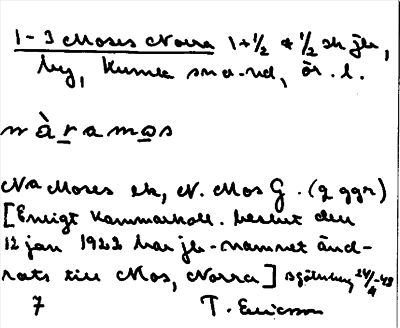 1-3 Moses Norra 1+1/2 + 1/2 sk jb,
by, Kumla sn o.-nd, ör. l.
n à r a m o s
Na Moses ek, N. Mos G. (2 ggr)
[Enligt Kammarkoll. beslut den
12 jan 1922 har jb-namnet änd-
rats till Mos, Norra] 24/4-43
7 T. Ericsson